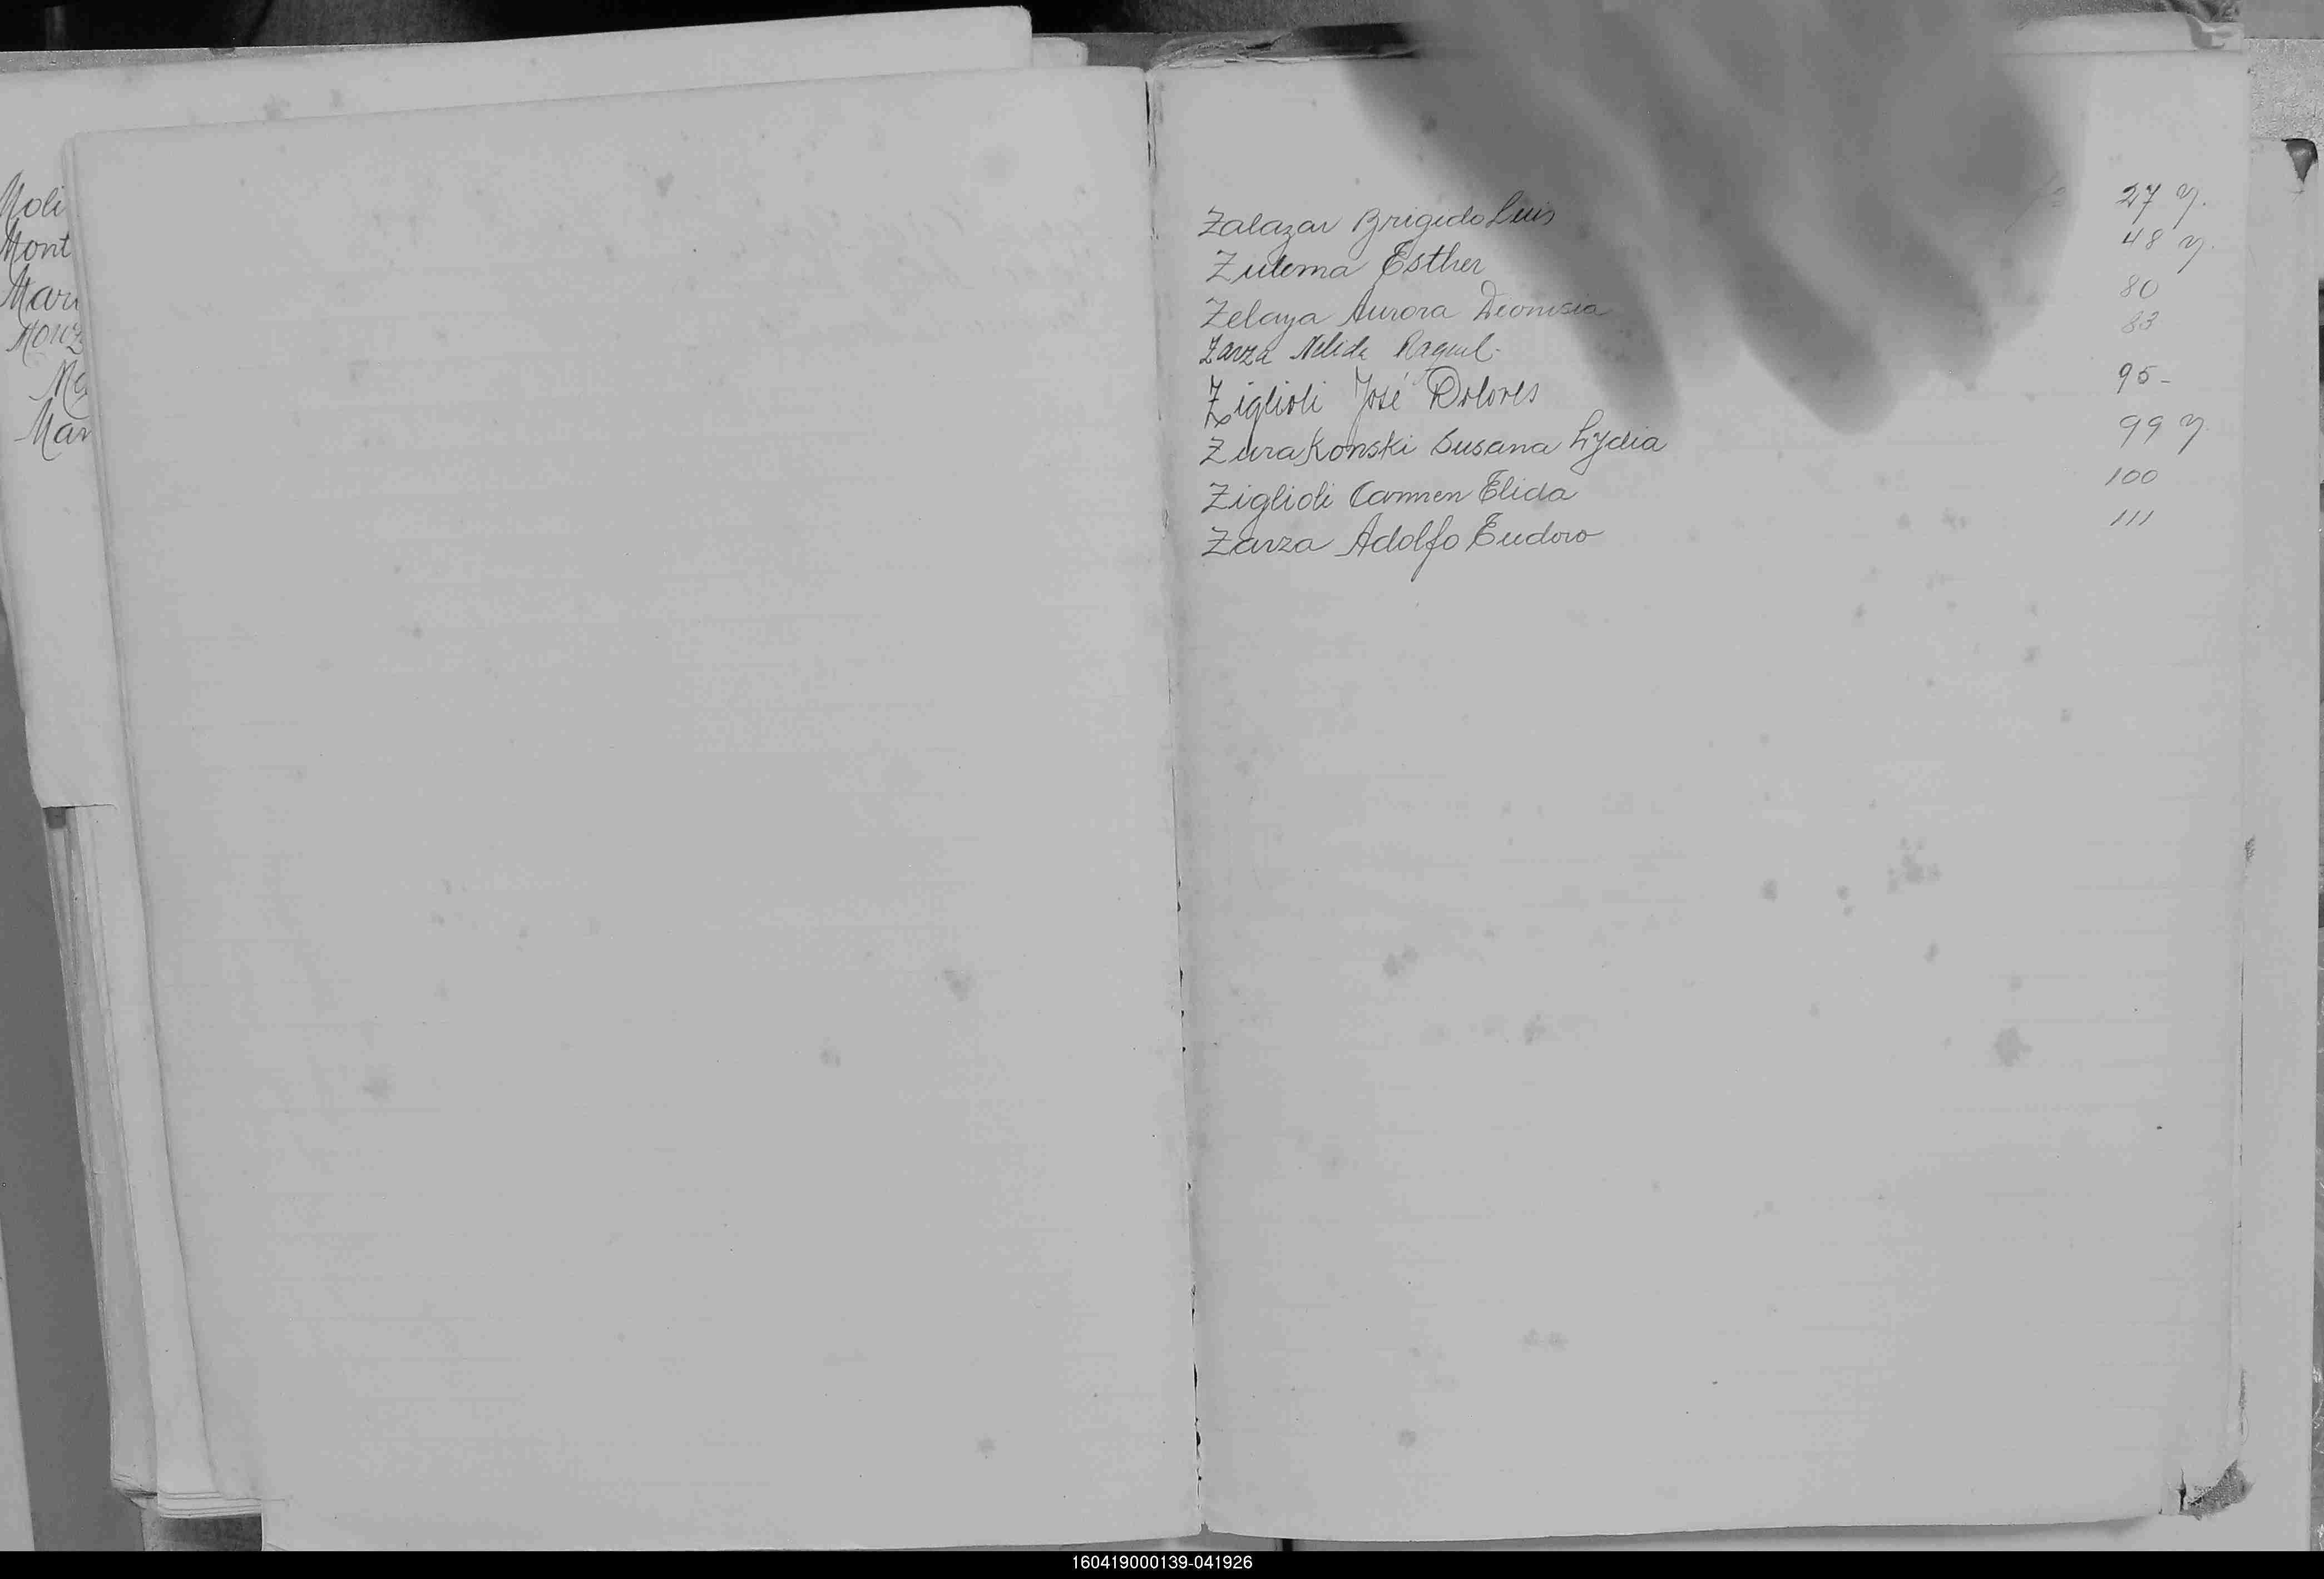 Moli
Mont
Mari
Monz
Ma
Mar
Zalazar Brigido Luis 27 y.
Zulema Esther 48 y.
Zelaya Aurora Dionisia 80
Zarza Nelida Raquel. 83
Ziglioli José Dolores 95-
Zurakonski Susana Lydia 99 y
Ziglioli Carmen Elida 100
Zarza Adolfo Eudoro 111
160419000139-041926